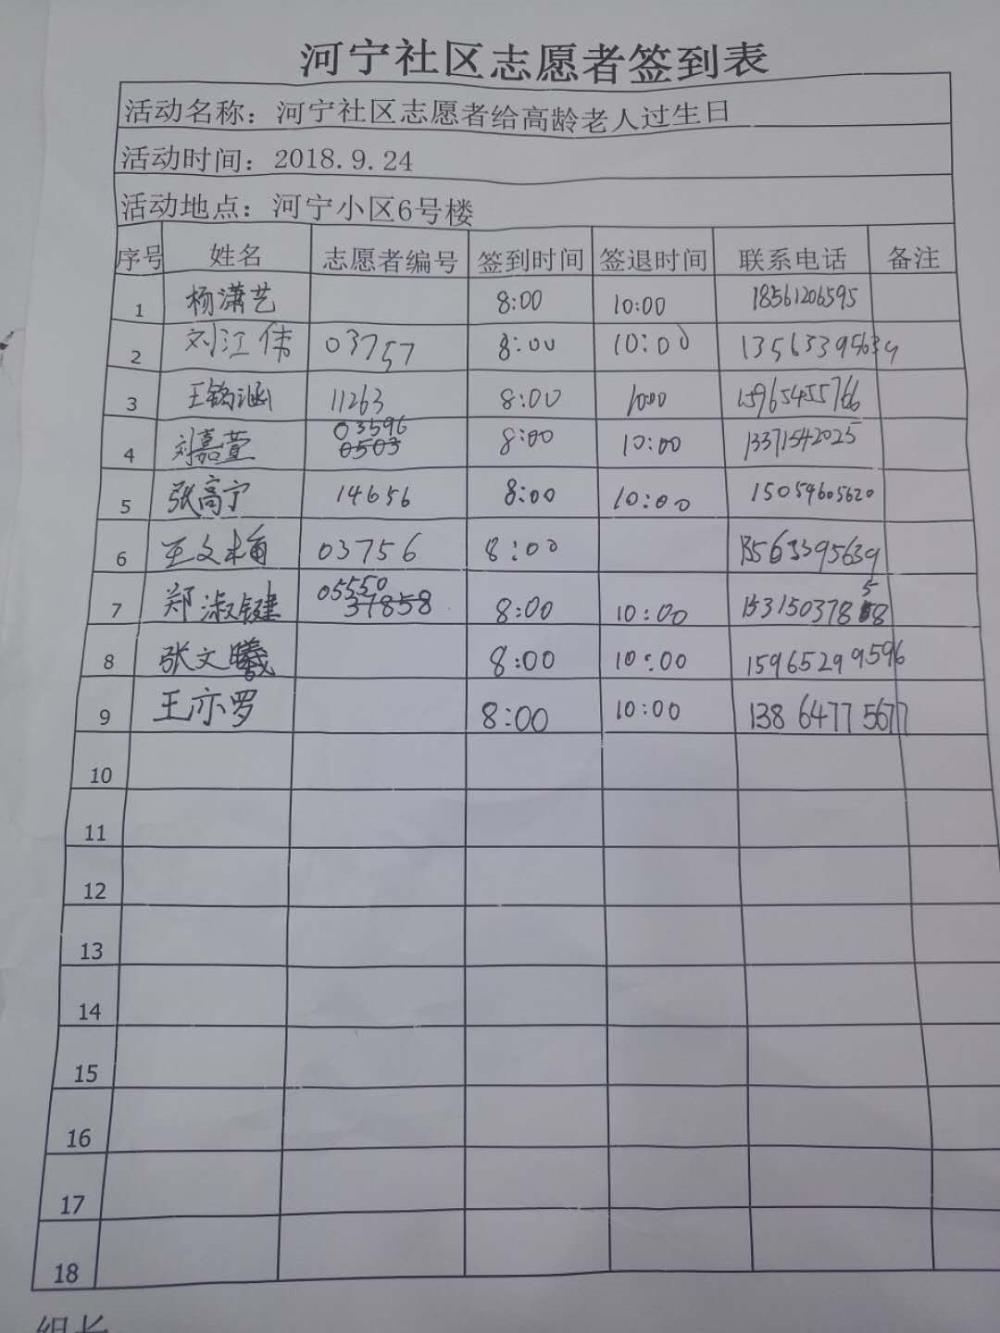 河宁社区志愿者签到表
活动名称：河宁社区志愿者给高龄老人过生日
活动时间：2018.9.24
活动地点：河宁小区6号楼
序号 姓名 志愿者编号 签到时间 签退时间 联系电话 备注
1 杨潇艺 8:00 10:00 18561206595
2 刘江伟 03757 8:00 10:00 13563395639
3 王钧涵 11263 8:00 10:00 15965455766
4 刘嘉萱 03596 8:00 10:00 13371542025
5 张高宁 14656 8:00 10:00 15059605620
6 王文 03756 8:00 13563395639
7 郑淑键 05550 8:00 10:00 15315037858
8 张文曦 8:00 10:00 15965299596
9 王亦罗 8:00 10:00 13864775677
10
11
12
13
14
15
16
17
18
组长